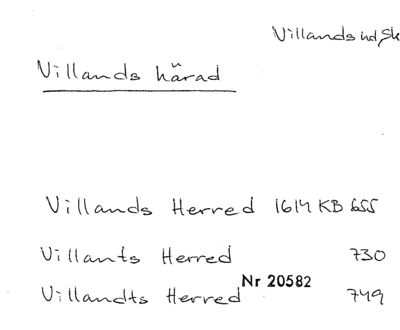 Villands hd, Sk
Villands härad
Villands Herred 1614 KB 655
Villants Herred 730
Nr 20582
Villandts Herred 749